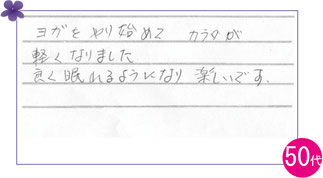 ヨガをやり始めて カラダが
軽くなりました
良く眠れるようになり 楽しいです.
50代